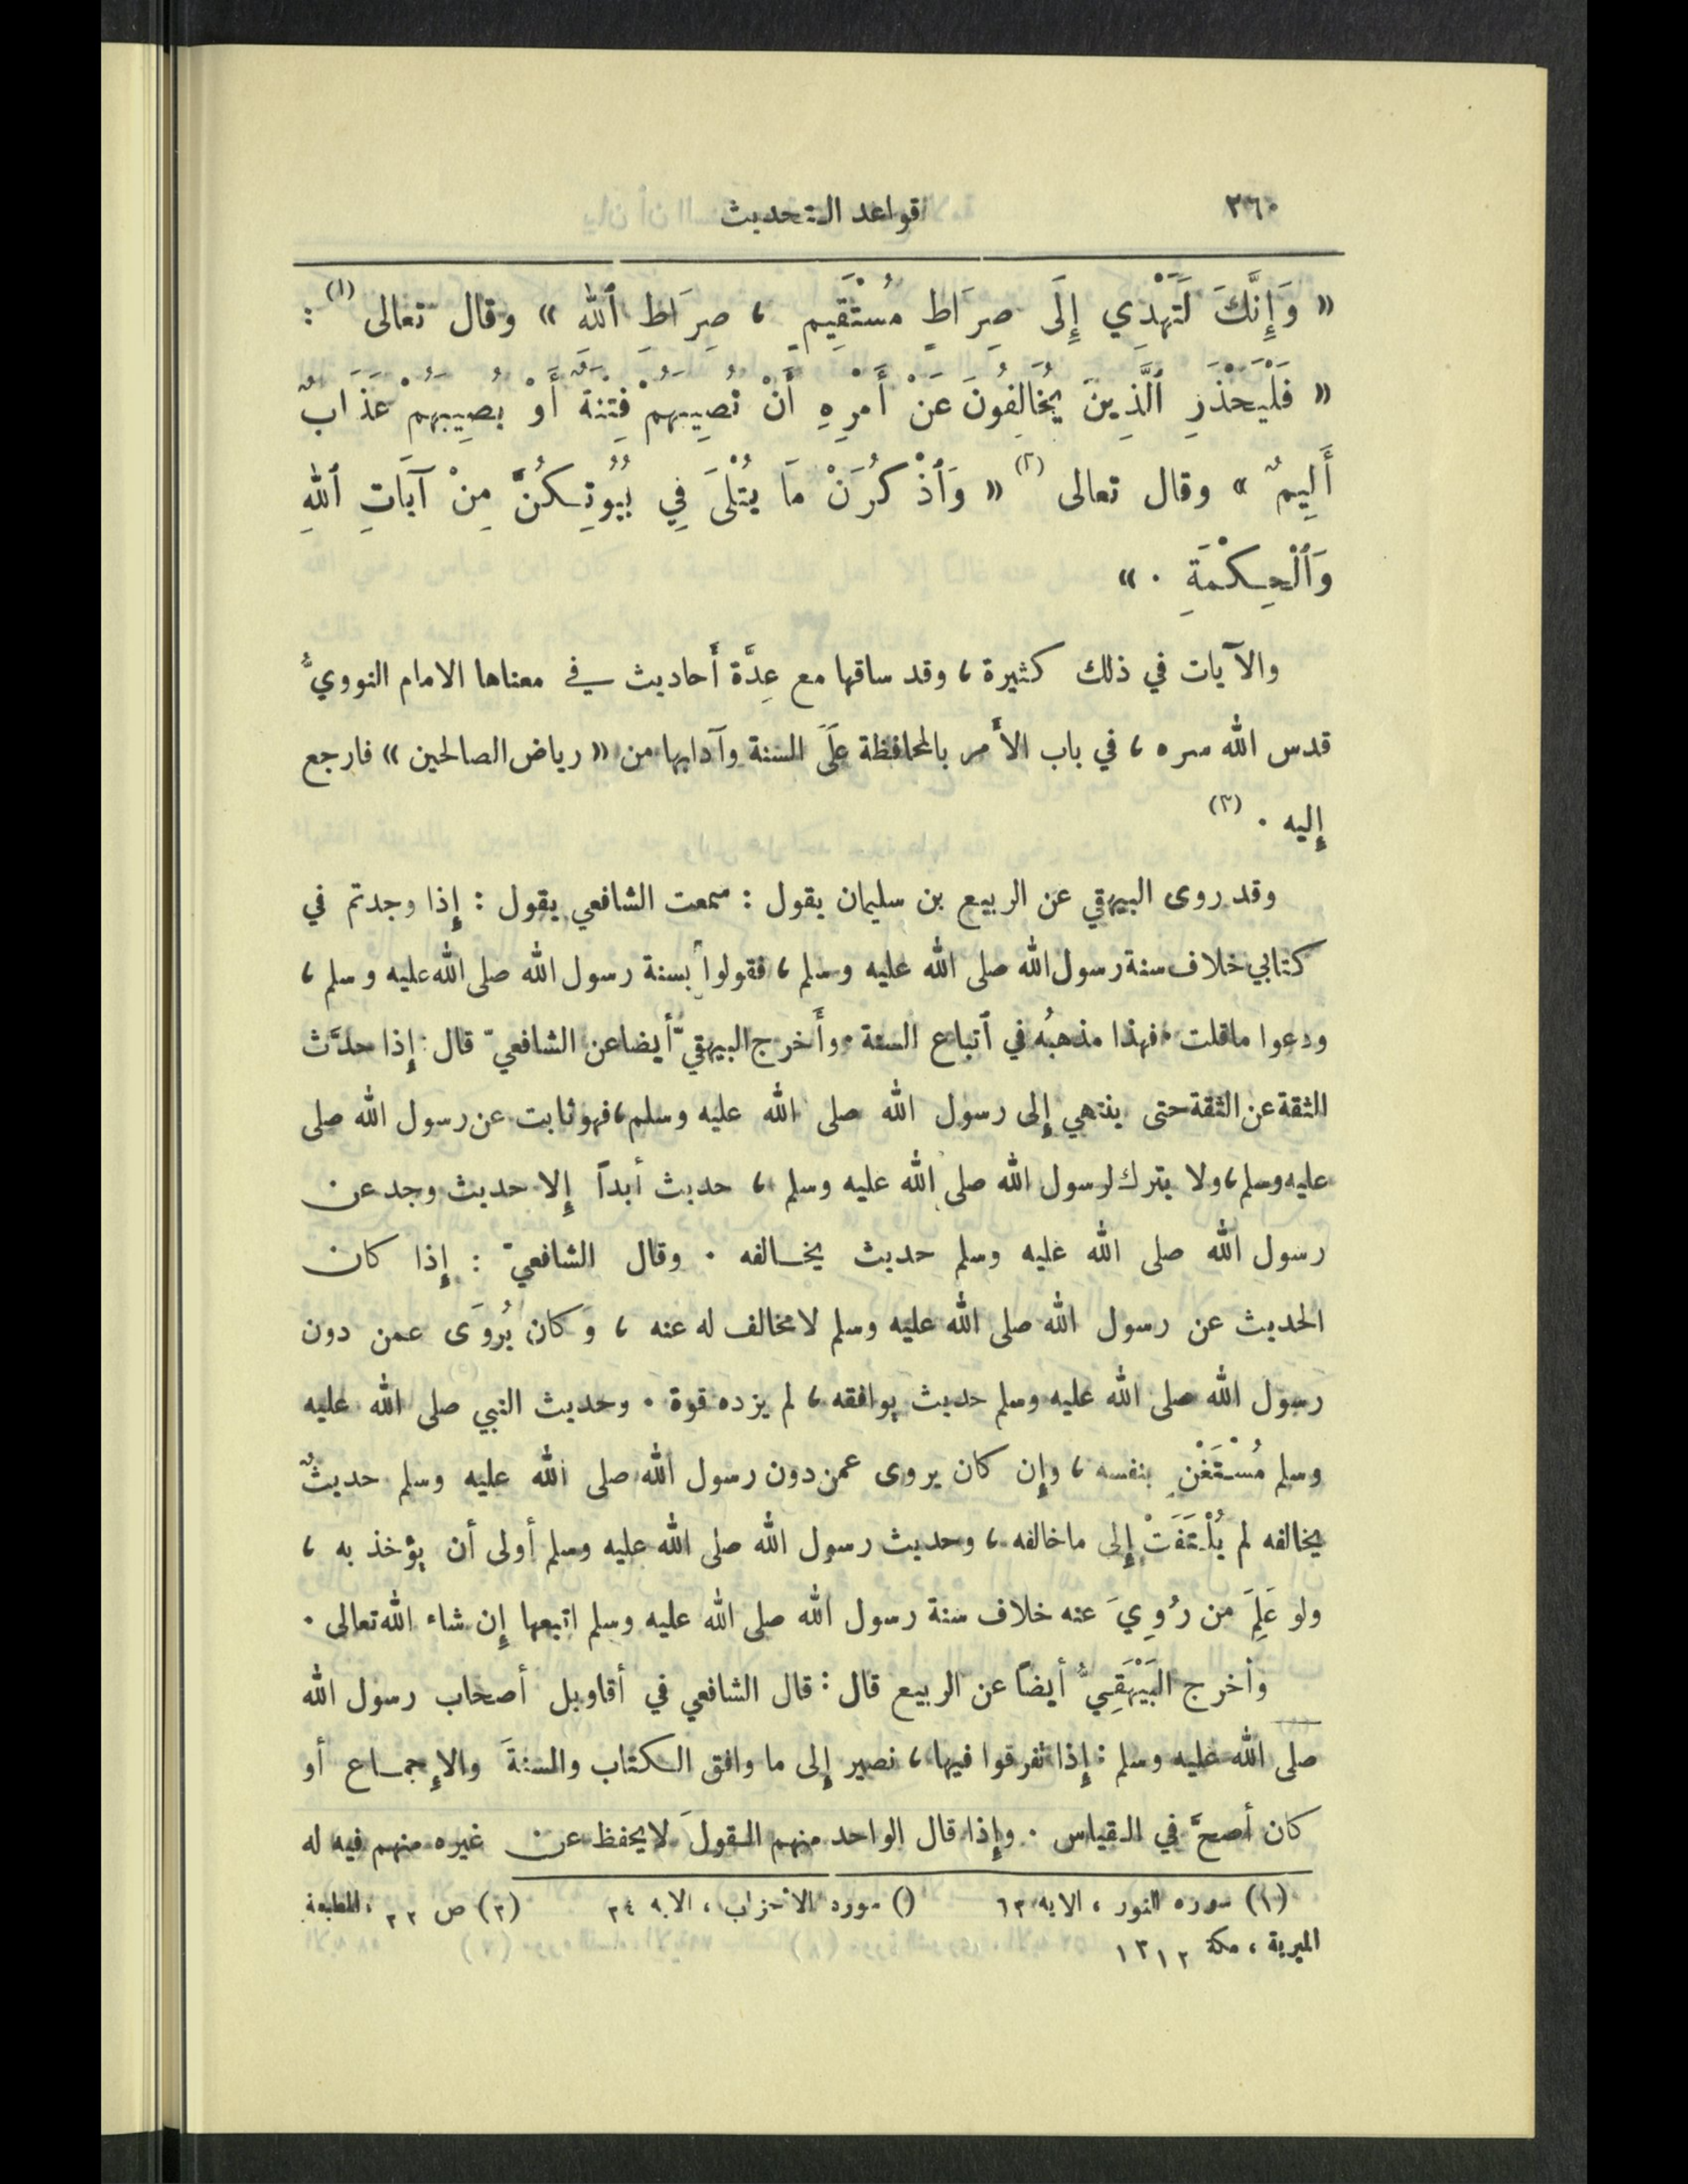 ٣٦٠ قواعد التحديث
« وَإِنَّكَ لَتَهْدِي إِلَى صِرَاطٍ مُسْتَقِيمٍ ، صِرَاطِ ٱللهِ » وقال تعالى (١) :
« فَلْيَحْذَرِ ٱلَّذِينَ يُخَالِفُونَ عَنْ أَمْرِهِ أَنْ تُصِيبَهُمْ فِتْنَةٌ أَوْ يُصِيبَهُمْ عَذَابٌ
أَلِيمٌ » وقال تعالى (٢) « وَٱذْكُرْنَ مَا يُتْلَى فِي بُيُوتِكُنَّ مِنْ آيَاتِ ٱللهِ
وَٱلْحِكْمَةِ . »
والآيات في ذلك كثيرة ، وقد ساقها مع عِدَّة أَحاديث في معناها الامام النوويُّ
قدس الله سره ، في باب الأَمر بالمحافظة عَلَى السنة وآدابها من « رياض الصالحين » فارجع
إِليه . (٣)
وقد روى البيهقي عن الربيع بن سليمان يقول : سمعت الشافعي يقول : إِذا وجدتم في
كتابي خلاف سنة رسول الله صلى الله عليه وسلم ، فقولوا بسنة رسول الله صلى الله عليه وسلم ،
ودعوا ماقلت . فهذا مذهبُه في ٱتباع السنة . وأَخرج البيهقيّ أيضا عن الشافعيّ قال : إِذا حدَّث
الثقة عن الثقة حتى ينتهي إِلى رسول الله صلى الله عليه وسلم ، فهو ثابت عن رسول الله صلى
عليه وسلم ، ولا يترك لرسول الله صلى الله عليه وسلم ، حديث أبداً إِلا حديث وجد عن
رسول الله صلى الله عليه وسلم حديث يخالفه . وقال الشافعيّ : إِذا كان
الحديث عن رسول الله صلى الله عليه وسلم لامخالف له عنه ، وَكان يُروَى عمن دون
رسول الله صلى الله عليه وسلم حديث يوافقه ، لم يزده قوة . وحديث النبي صلى الله عليه
وسلم مُسْتَغْنٍ بنفسه ، وإِن كان يروى عمن دون رسول الله صلى الله عليه وسلم حديثٌ
يخالفه لم يُلْتَفَتْ إِلى ماخالفه ، وحديث رسول الله صلى الله عليه وسلم أولى أن يؤخذ به ،
ولو عَلِمَ من رُوِيَ عنه خلاف سنة رسول الله صلى الله عليه وسلم اتبعها إِن شاء الله تعالى .
وأخرج البَيْهَقِيُّ أيضاً عن الربيع قال : قال الشافعي في أقاويل أصحاب رسول الله
صلى الله عليه وسلم : إِذا تفرقوا فيها ، نصير إِلى ما وافق الكتاب والسنةَ والإِجماع أو
كان أصحَّ في القياس . وإِذا قال الواحد منهم القولَ لايحفظ عن غيره منهم فيه له
(١) سوره النور ، الايه ٦٣ () سورة الاحزاب ، الابه ٣٤ (٣) ص ٢٢ ، المطبعة
الميرية ، مكة ١٣١٢